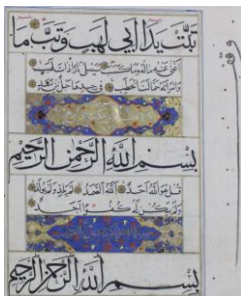 تبت يدا ابي لهب وتب ما
اغنى عنه ماله وما كسب سيصلى نارا ذات لهب
وامراته حمالة الحطب في جيدها حبل من مسد
بسم الله الرحمن الرحيم
قل هو الله احد الله الصمد لم يلد ولم يولد
ولم يكن له كفوا احد
بسم الله الرحمن الرحيم